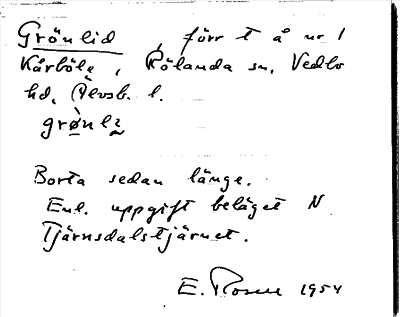 Grönlid, förr t å nr 1
Kårböle, Rölanda sn, Vedbo
hd, Älvsb. l.
grø̀nlɩ
Borta sedan länge.
Enl. uppgift beläget N
Tjärnsdalstjärnet.
E. Rosen 1954